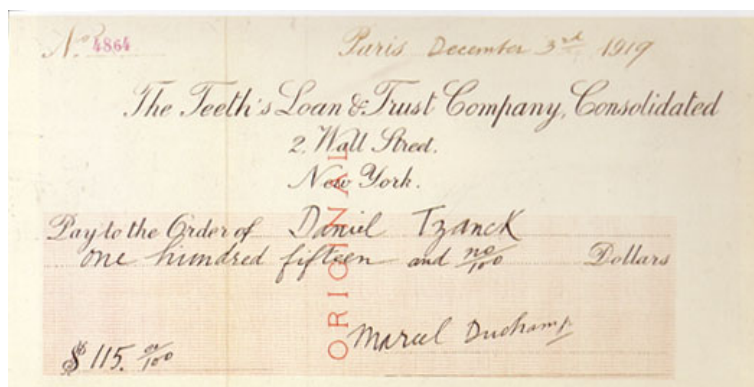 No. 4864
Paris December 3rd 1919
The Teeth's Loan & Trust Company, Consolidated
2. Wall Street.
New York.
ORIGINAL
Pay to the Order of Daniel Tzanck
one hundred fifteen and no/100 Dollars
$ 115. oo/100 Marcel Duchamp